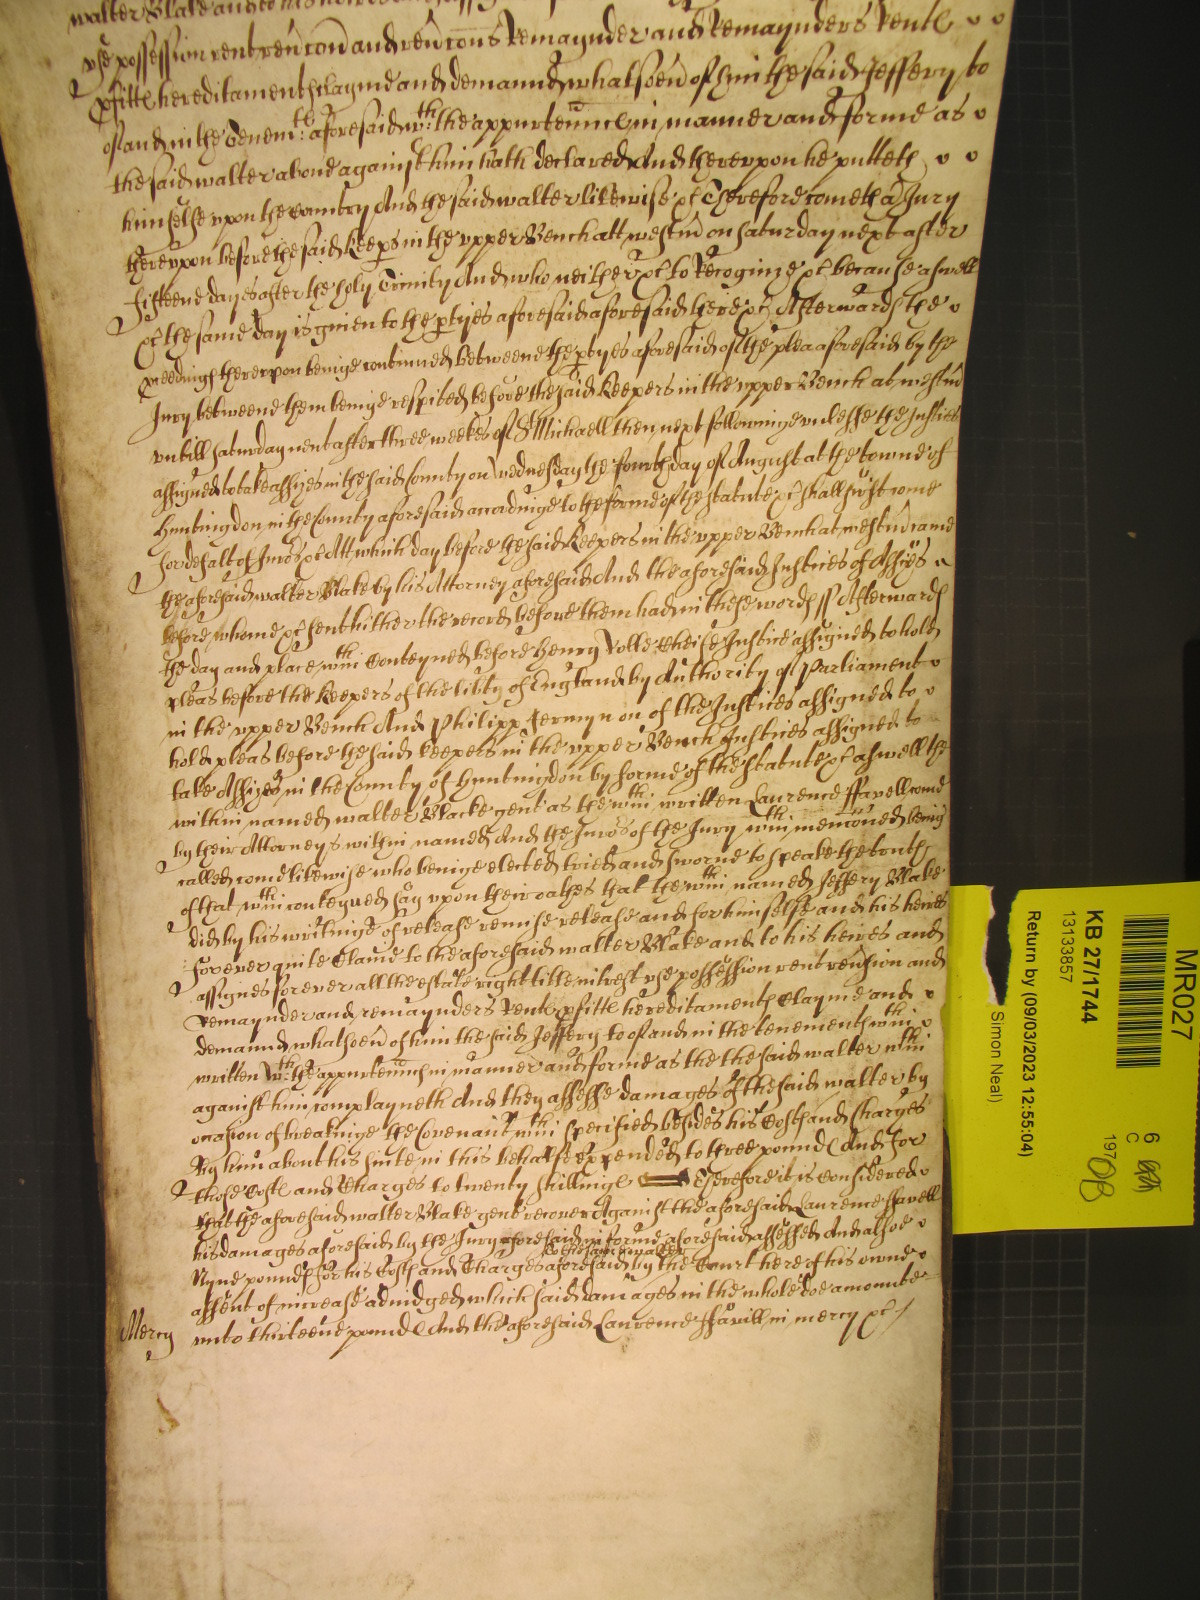 walter Blake and to his heires and assig
vse possession rent reu͠con and reu͠cons Remaynder and Remaynders Rents
pfitts hereditaments clayme and demannd whatsoeu͠ of him the said Jeffery to
of and in the Tenemts: aforesaid wth: the appurten͠nces in manner and forme as
the said walter aboue against him hath declared And therevpon he putteth
himselfe vpon the Countrey And the said walter likewise &c Therefore cometh a Jury
therevpon before the said Keeps in the vpper Bench att westm͠ on Saturday next after
fifteene dayes after the holy Trinity And who neither &c to Recognize &c because aswell
&c the same day is giuen to the ptyes aforesaid aforesaid here &c Afterwards the
pceedings therevpon beinge continued betweene the ptyes aforesaid of the plea aforesaid by the
Jury betweene them beinge respited before the said Keepers in the vpper Bench at westm͠
vntill Saturday next after three weekes of St Michaell then next followinge vnlesse the Justices
assigned to take assizes in the said County on wednesday the fourth day of August at the towne of
Huntingdon in the County aforesaid accordinge to the forme of the statute &c shall first come
for default of Juro͠s &c Att which day before the said Keepers in the vpper Bench at westm͠ came
the aforesaid walter Blake by his Attorney aforesaid And the aforesaid Justices of Assizes
before whome &c sent hither the record before them had in these words ss Afterwards
the day and place wthin Conteyned before Henry Rolle Cheife Justice assigned to hold
pleas before the Keepers of the lib͠ty of England by Authority of Parliament
in the vpper Bench And Philipp Jermyn on of the Justices assigned to
hold pleas before the said keepers in the vpper Bench Justices assigned to
take Assizes in the County of Huntingdon by forme of the statute &c aswell the
within named walter Blacke gent as the wthin written Laurence ffavell come
by their Attorneys within named And the Juro͠s of the Jury wthin menc͠oned being
called come likewise who beinge elected tried and sworne to speake the truth
of that wthin conteyned say vpon their oathes that the wthin named Jeffery Blake
did by his writinge of release remise release and for himselfe and his heires
forever quite Clame to the aforesaid walter Blake and to his heires and
assignes forever all the estate right title int͠est vse possession rent reu͠sion and
remaynder and remaynders Rents pfitts hereditaments Clayme and
demannd whatsoeu͠ of him the said Jeffery to of and in the tenements wthin
written wth: the appurten͠nces in manner and forme as the the said walter wthin
against him complayneth And they assesse damages of the said walter by
occasion of breakinge the Covenant wthin specified besides his Costs and Charges
By him about his suite in this behalfe expended to three pounds And for
those Costs and Charges to twenty shillings Therefore it is Considered
that the aforesaid walter Blake gent recover Against the aforesaid Laurence ffavell
his damages aforesaid by the Jury aforesaid in forme aforesaid assessed And alsoe
to the said walter
Nyne pounds for his Costs and Charges aforesaid by the Court here of his owne
assent of increase adiudged which said damages in the whole doe amounte
vnto thirteene pounds And the aforesaid Laurence ffavill in mercy &c /
Mercy
MR027
KB 27/1744
13133857
Return by (09/03/2023 12:55:04)
Simon Neal)
6
C
197